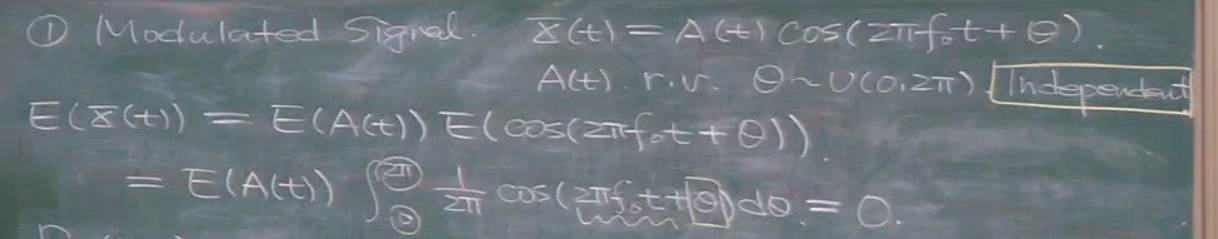 ① Modulated Signal. X(t) = A(t) cos(2πf₀t + θ).
A(t). r.v. θ ~ U(0,2π). Independent
E(X(t)) = E(A(t)) E(cos(2πf₀t + θ)).
= E(A(t)) ∫₀^2π 1/2π cos(2πf₀t + θ) dθ = 0.